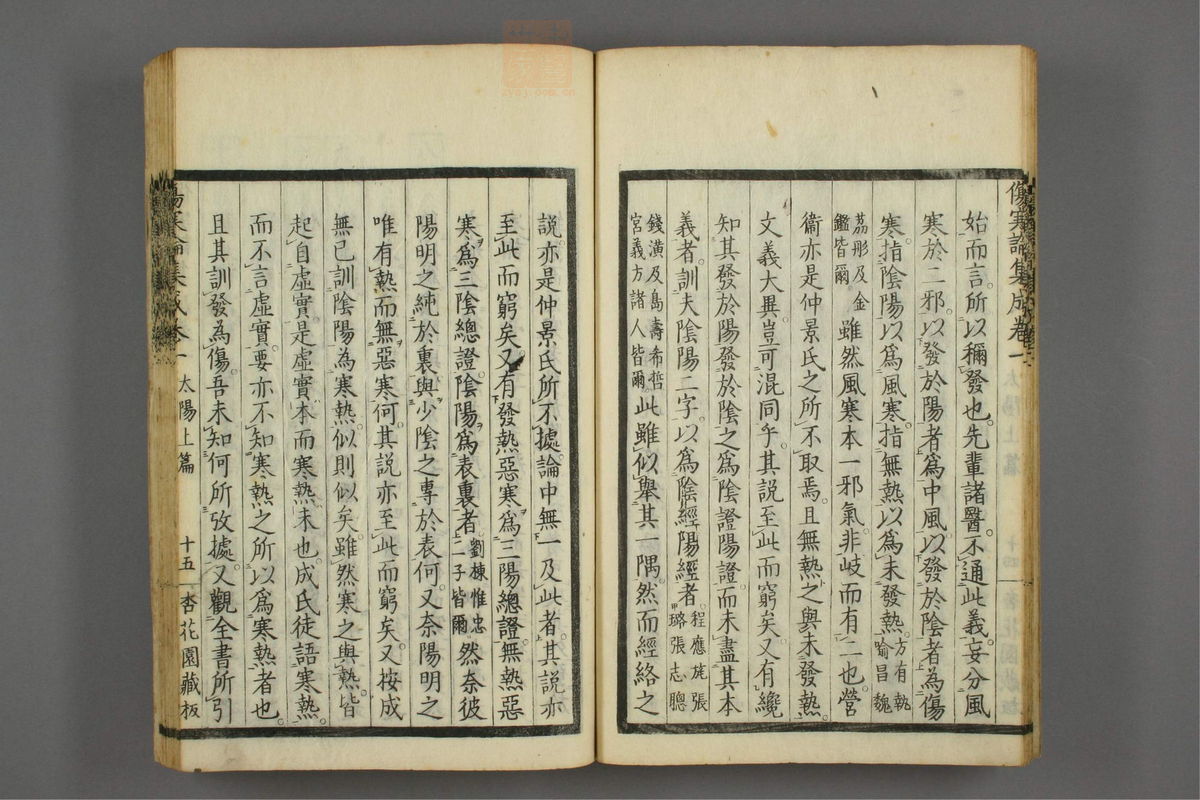 傷寒論集成卷一
始而言。所以稱發也。先輩諸醫。不通此義。妄分風
寒於二邪。以發於陽者爲中風。以發於陰者為傷
寒。指陰陽以爲風寒。指無熱以爲未發熱。方有執喻昌魏
荔彤及金鑑皆爾 雖然風寒本一邪氣。非岐而有二也。營
衞亦是仲景氏之所不取焉。且無熱之與未發熱。
文義大異。豈可混同乎。其說至此而窮矣。又有纔
知其發於陽發於陰之爲陰證陽證。而未盡其本
義者。訓夫陰陽二字。以爲陰經陽經者。程應旄張璐張志聰
錢潢及島壽希哲宮義方諸人皆爾 此雖似舉其一隅。然而經絡之
說。亦是仲景氏所不據。論中無一及此者。其說亦
至此而窮矣。又有發熱惡寒爲三陽總證。無熱惡
寒爲三陰總證。陰陽爲表裏者。劉棟惟忠二子皆爾 然奈彼
陽明之純於裏。與少陰之專於表何。又奈陽明之
唯有熱而無惡寒何。其說亦至此而窮矣。又按成
無已訓陰陽為寒熱。似則似矣。雖然寒之與熱。皆
起自虛實。是虛實本而寒熱末也。成氏徒語寒熱。
而不言虛實。要亦不知寒熱之所以爲寒熱者也。
且其訓發為傷。吾未知何所攷據。又觀全書所引
傷寒論集成卷一 太陽上篇 十五 杏花園藏板